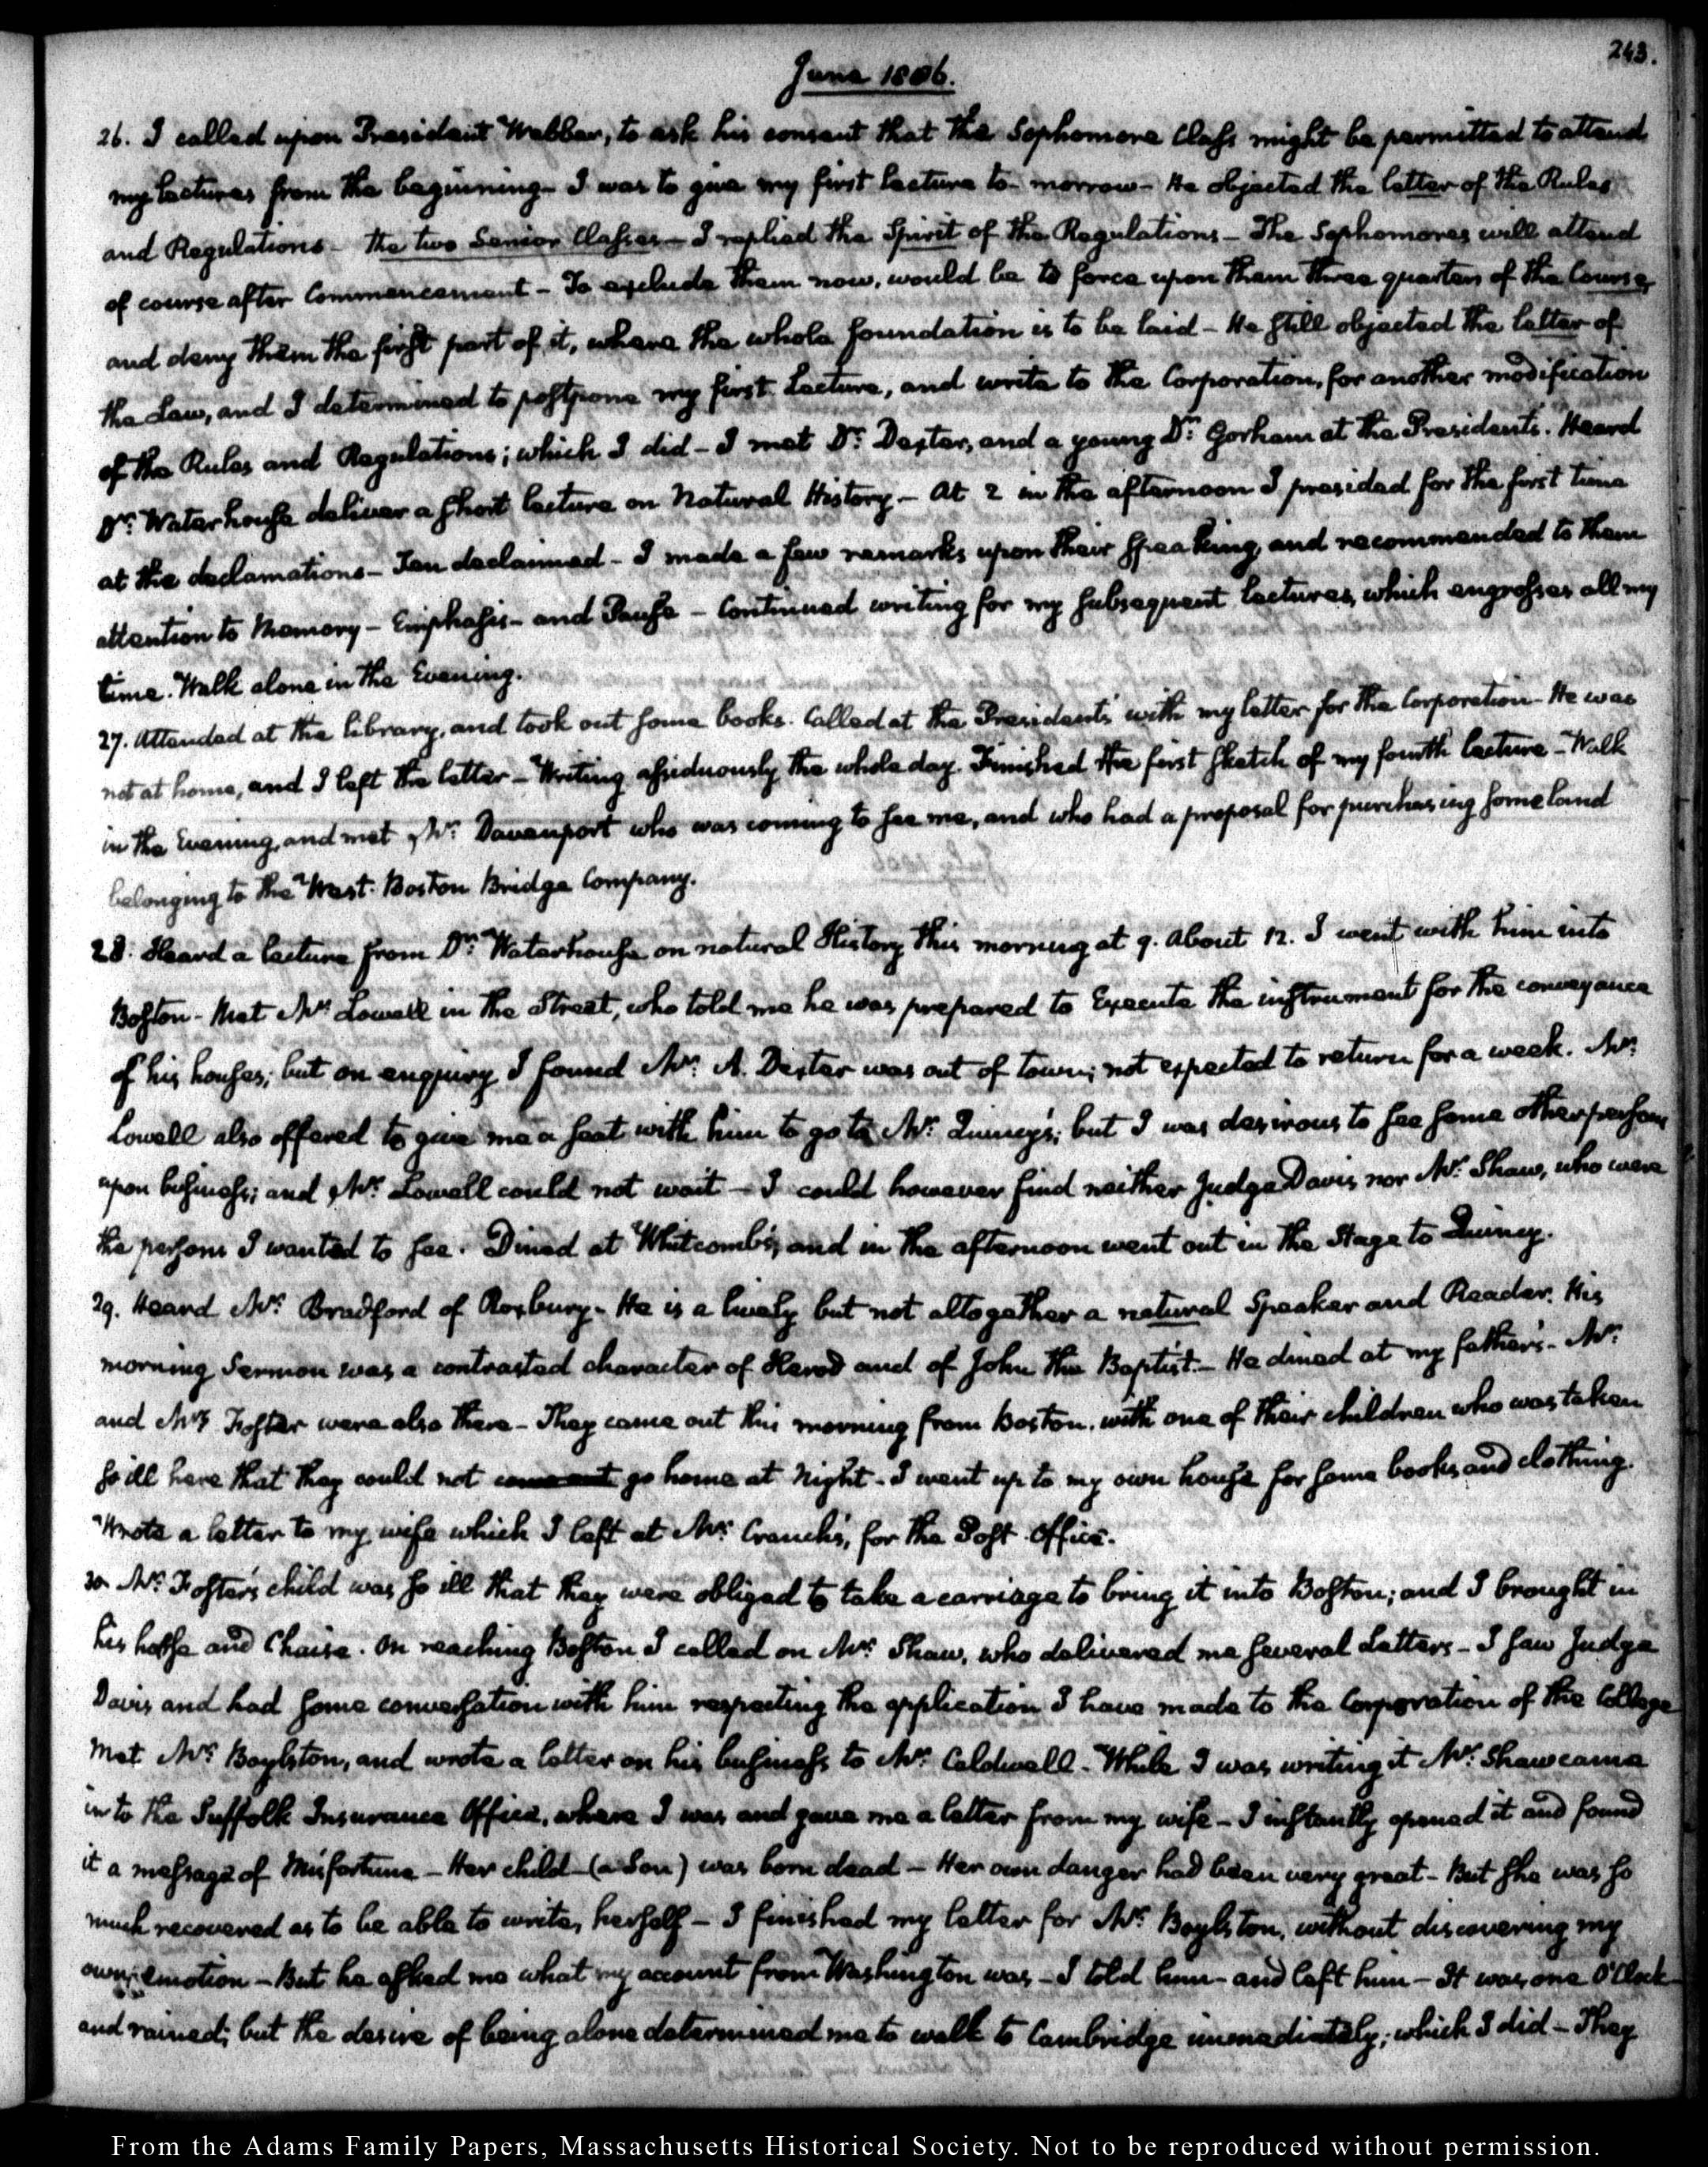 243.
June 1806.
26. I called upon President Webber, to ask his consent that the Sophomore Class might be permitted to attend
my lectures from the beginning - I was to give my first lecture to-morrow - He objected the letter of the Rules
and Regulations - the two Senior Classes - I replied the Spirit of the Regulations - The Sophomores will attend
of course after Commencement - To exclude them now, would be to force upon them three quarters of the Course,
and deny them the first part of it, where the whole foundation is to be laid - He still objected the letter of
the Law, and I determined to postpone my first Lecture, and write to the Corporation, for another modification
of the Rules and Regulations; which I did - I met Dr. Dexter, and a young Dr. Gorham at the Presidents. Heard
Dr. Waterhouse deliver a short lecture on Natural History - At 2 in the afternoon I presided for the first time
at the declamations - Ten declaimed - I made a few remarks upon their speaking, and recommended to them
attention to Memory - Emphasis - and Pause - Continued writing for my subsequent lectures, which engrosses all my
time. Walk alone in the Evening.
27. Attended at the library, and took out some books. Called at the Presidents with my letter for the Corporation - He was
not at home, and I left the letter - Writing assiduously the whole day. Finished the first sketch of my fourth lecture - Walk
in the Evening, and met Mr. Davenport who was coming to see me, and who had a proposal for purchasing some land
belonging to the West-Boston Bridge Company.
28. Heard a lecture from Dr. Waterhouse on natural History this morning at 9. About 12. I went with him into
Boston - Met Mr. Lowell in the Street, who told me he was prepared to Execute the instrument for the conveyance
of his houses; but on enquiry I found Mr. A. Dexter was out of town; not expected to return for a week. Mr.
Lowell also offered to give me a seat with him to go to Mr. Quincy's; but I was desirous to see some other persons
upon business; and Mr. Lowell could not wait - I could however find neither Judge Davis nor Mr. Shaw, who were
the persons I wanted to see. Dined at Whitcomb's, and in the afternoon went out in the Stage to Quincy.
29. Heard Mr. Bradford of Roxbury - He is a lively but not altogether a natural Speaker and Reader. His
morning Sermon was a contrasted character of Herod and of John the Baptist. - He dined at my father's - Mr.
and Mrs. Foster were also there - They came out this morning from Boston, with one of their children who was taken
so ill here that they could not go home at Night - I went up to my own house for some books and clothing.
Wrote a letter to my wife which I left at Mr. Cranch's, for the Post-Office.
30. Mr. Foster's child was so ill that they were obliged to take a carriage to bring it into Boston; and I brought in
his horse and Chaise. On reaching Boston I called on Mr. Shaw, who delivered me several Letters - I saw Judge
Davis and had some conversation with him respecting the application I have made to the Corporation of the College
Met Mr. Boylston, and wrote a letter on his business to Mr. Caldwell - While I was writing it Mr. Shaw came
in to the Suffolk Insurance Office, where I was and gave me a letter from my wife - I instantly opened it and found
it a message of Misfortune - Her child - (a Son) was born dead - Her own danger had been very great - But she was so
much recovered as to be able to write, herself - I finished my letter for Mr. Boylston, without discovering my
own emotion - But he asked me what my account from Washington was - I told him - and left him - It was one O'Clock
and rained; but the desire of being alone determined me to walk to Cambridge immediately; which I did - They
From the Adams Family Papers, Massachusetts Historical Society. Not to be reproduced without permission.